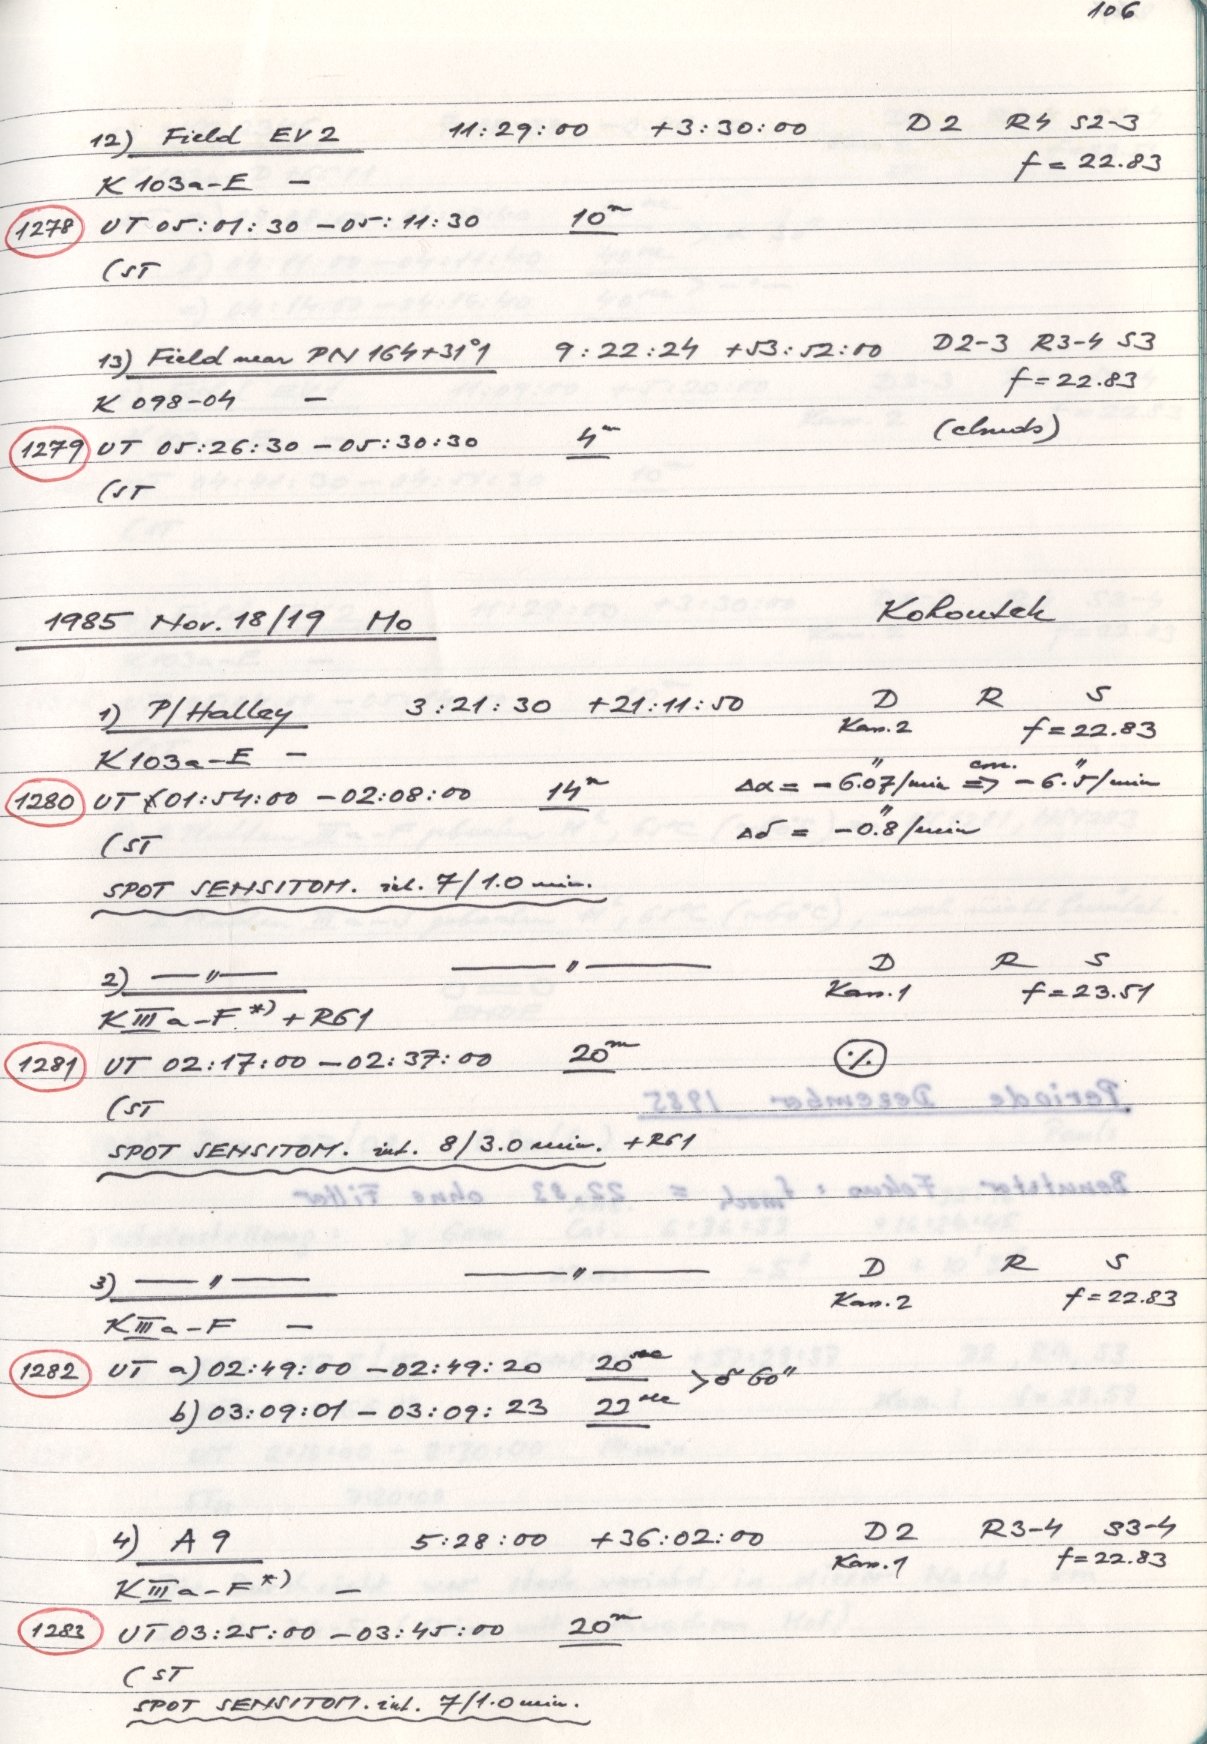 106
12) Field EV2 11:29:00 +3:30:00 D2 R4 S2-3
K 103a-E — f = 22.83
1278 UT 05:01:30 – 05:11:30 10ᵐ
(ST
13) Field near PN 164+31°1 9:22:24 +53:52:00 D2-3 R3-4 S3
K 098-04 — f = 22.83
1279 UT 05:26:30 – 05:30:30 4ᵐ (clouds)
(ST
1985 Nov. 18/19 Mo Kohoutek
1) P/Halley 3:21:30 +21:11:50 D R S
Kam.2 f = 22.83
K 103a-E —
1280 UT 01:54:00 – 02:08:00 14ᵐ Δα = –6.″07/min corr. ⇒ –6.″5/min
(ST Δδ = –0.″8/min
SPOT SENSITOM. int. 7/1.0 min.
2) —〃— —〃— D R S
Kam.1 f = 23.51
K III a-F *) + RG1
1281 UT 02:17:00 – 02:37:00 20ᵐ ./.
(ST
SPOT SENSITOM. int. 8/3.0 min. + RG1
3) —〃— —〃— D R S
Kam.2 f = 22.83
K III a-F —
1282 UT a) 02:49:00 – 02:49:20 20ˢᵉᶜ > δ 60"
b) 03:09:01 – 03:09:23 22ˢᵉᶜ
4) A 9 5:28:00 +36:02:00 D2 R3-4 S3-4
Kam.1 f = 22.83
K III a-F *) —
1283 UT 03:25:00 – 03:45:00 20ᵐ
(ST
SPOT SENSITOM. int. 7/1.0 min.